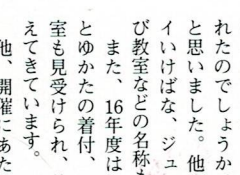 れたのでしょうか
と思いました。他
イいけばな、ジュ
び教室などの名称も
また、16年度は
とゆかたの着付、
室も見受けられ、
えてきています。
他、開催にあた